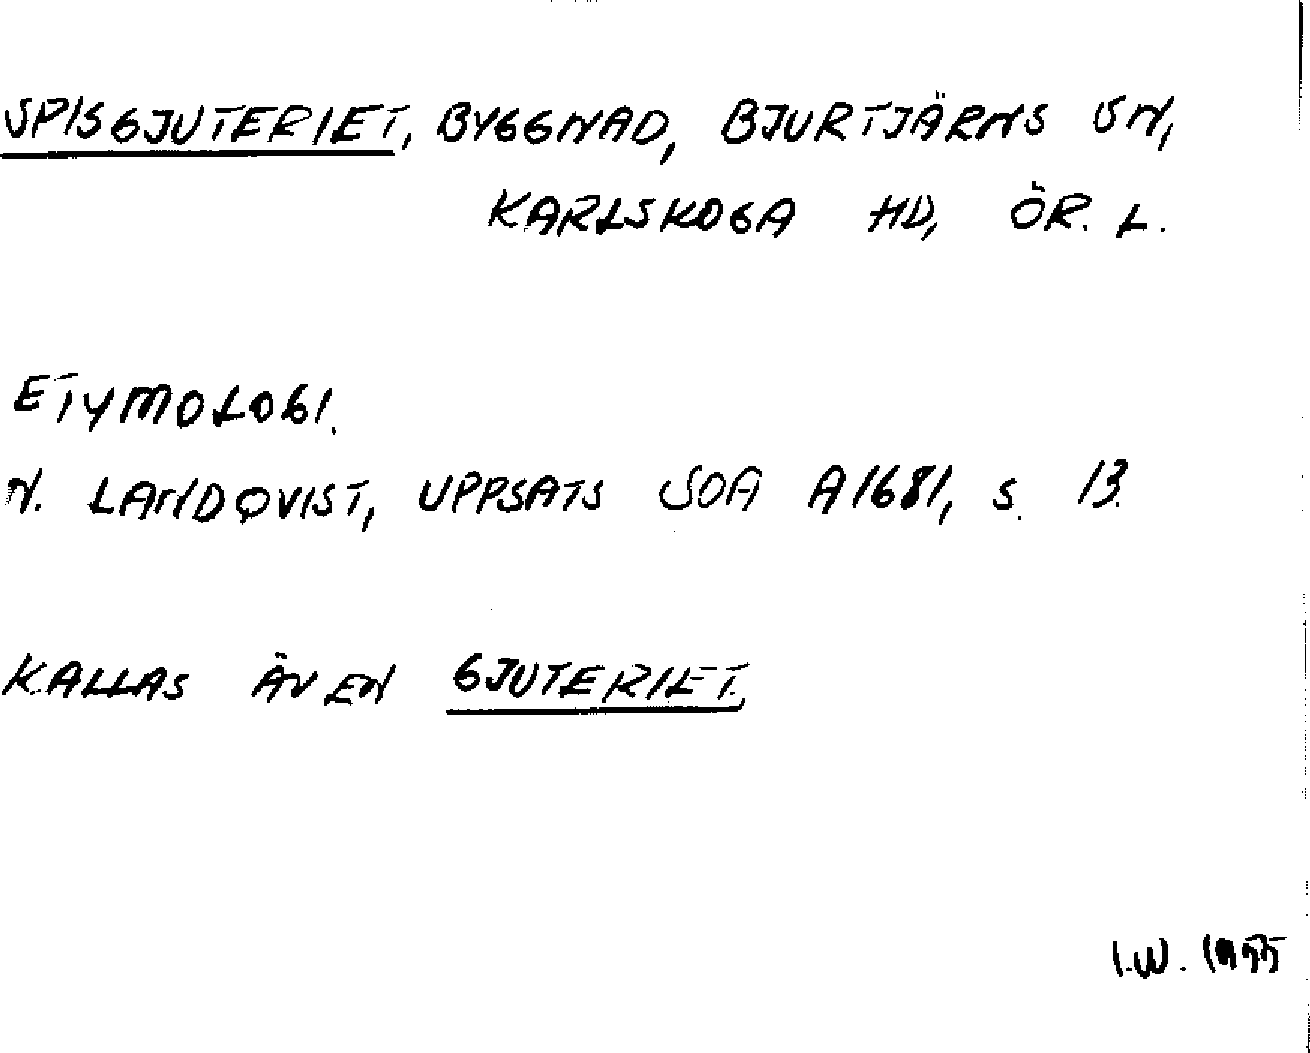 SPISGJUTERIET, BYGGNAD, BJURTJÄRNS SN,
KARLSKOGA HD, ÖR. L.
ETYMOLOGI.
N. LANDQVIST, UPPSATS SOA A1681, S. 13.
KALLAS ÄVEN GJUTERIET.
I.W.